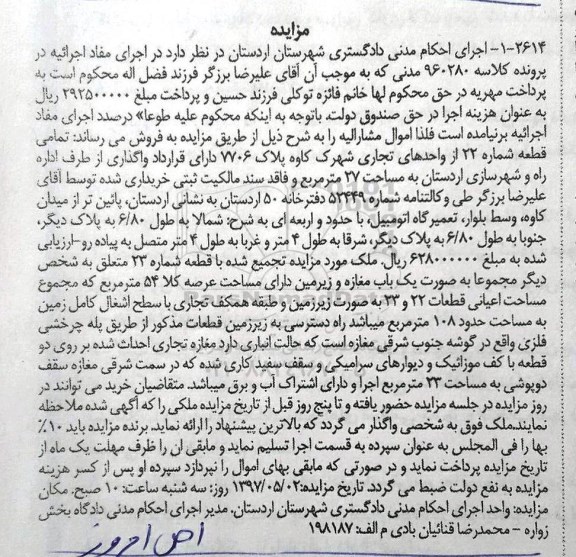 مزایده
۱-۲۶۱۴- اجرای احکام مدنی دادگستری شهرستان اردستان در نظر دارد در اجرای مفاد اجرائیه در
پرونده کلاسه ۹۶۰۲۸۰ مدنی که به موجب آن آقای علیرضا برزگر فرزند فضل اله محکوم است به
پرداخت مهریه در حق محکوم لها خانم فائزه توکلی فرزند حسین و پرداخت مبلغ ۲۹۲۵۰۰۰۰۰ ریال
به عنوان هزینه اجرا در حق صندوق دولت. باتوجه به اینکه محکوم علیه طوعا» درصدد اجرای مفاد
اجرائیه برنیامده است فلذا اموال مشارالیه را به شرح ذیل از طریق مزایده به فروش می رساند: تمامی
قطعه شماره ۲۲ از واحدهای تجاری شهرک کاوه پلاک ۷۷۰۶ دارای قرارداد واگذاری از طرف اداره
راه و شهرسازی اردستان به مساحت ۲۷ مترمربع و فاقد سند مالکیت ثبتی خریداری شده توسط آقای
علیرضا برزگر طی وکالتنامه شماره ۵۲۴۴۹ دفترخانه ۵۰ اردستان به نشانی اردستان، پائین تر از میدان
کاوه، وسط بلوار، تعمیرگاه اتومبیل، با حدود و اربعه ای به شرح: شمالا به طول ۶/۸۰ به پلاک دیگر،
جنوبا به طول ۶/۸۰ به پلاک دیگر، شرقا به طول ۴ متر و غربا به طول ۴ متر متصل به پیاده رو-ارزیابی
شده به مبلغ ۶۲۸۰۰۰۰۰۰ ریال. ملک مورد مزایده تجمیع شده با قطعه شماره ۲۳ متعلق به شخص
دیگر مجموعا به صورت یک باب مغازه و زیرمین دارای مساحت عرصه کلا ۵۴ مترمربع که مجموع
مساحت اعیانی قطعات ۲۲ و ۲۳ به صورت زیرزمین و طبقه همکف تجاری با سطح اشغال کامل زمین
به مساحت حدود ۱۰۸ مترمربع میباشد راه دسترسی به زیرزمین قطعات مذکور از طریق پله چرخشی
فلزی واقع در گوشه جنوب شرقی مغازه است که حالت انباری دارد مغازه تجاری احداث شده بر روی دو
قطعه با کف موزائیک و دیوارهای سرامیکی و سقف سفید کاری شده که در سمت شرقی مغازه سقف
دوپوشی به مساحت ۲۳ مترمربع اجرا و دارای اشتراک آب و برق میباشد. متقاضیان خرید می توانند در
روز مزایده در جلسه مزایده حضور یافته و تا پنج روز قبل از تاریخ مزایده ملکی را که آگهی شده ملاحظه
نمایند.ملک فوق به شخصی واگذار می گردد که بالاترین پیشنهاد را ارائه نماید. برنده مزایده باید ۱۰٪
بها را فی المجلس به عنوان سپرده به قسمت اجرا تسلیم نماید و مابقی ان را ظرف مهلت یک ماه از
تاریخ مزایده پرداخت نماید و در صورتی که مابقی بهای اموال را نپردازد سپرده او پس از کسر هزینه
مزایده به نفع دولت ضبط می گردد. تاریخ مزایده:۱۳۹۷/۰۵/۰۲ روز: سه شنبه ساعت: ۱۰ صبح. مکان
مزایده: واحد اجرای احکام مدنی دادگستری شهرستان اردستان. مدیر اجرای احکام مدنی دادگاه بخش
زواره - محمدرضا قنائیان بادی م الف: ۱۹۸۱۸۷
امروز